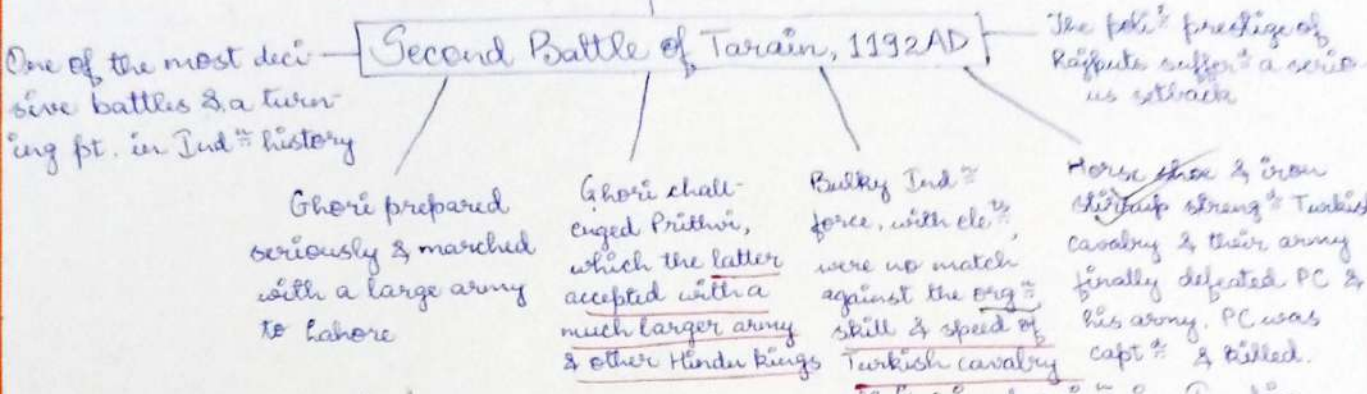 Second Battle of Tarain, 1192AD
One of the most deci-
sive battles & a turn-
ing pt. in Ind^n history
The pol^l prestige of
Rajputs suffer^d a serio-
us setback
Ghori prepared
seriously & marched
with a large army
to Lahore
Ghori chall-
enged Prithvi,
which the latter
accepted with a
much larger army
& other Hindu kings
Bulky Ind^n
force, with ele^
were no match
against the org^n,
skill & speed of
Turkish cavalry
Horse shoe & iron
stirrup streng^ Turkish
cavalry & their army
finally defeated PC &
his army. PC was
capt^ & killed.